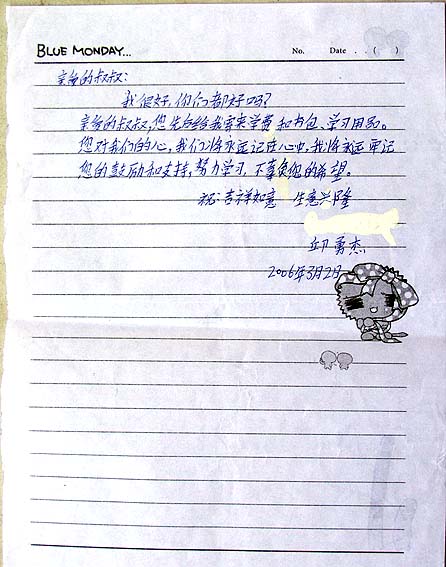 BLUE MONDAY...
No. Date . . ( )
亲爱的叔叔:
我很好,你们都好吗?
亲爱的叔叔,您先后给我寄来学费和书包、学习用品。
您对我们的心,我们将永远记在心中,我将永远牢记
您的鼓励和支持,努力学习,不辜负您的希望。
祝:吉祥如意 生意兴隆
邱勇杰
2006年3月2日